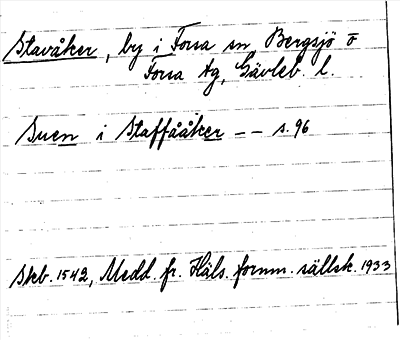 Stavåker, by i Forsa sn Bergsjö o
Forsa tg, Gävleb. l.
Suen i Staffååker -- s. 96
Skb. 1542, Medd. fr. Häls. fornm. sällsk. 1933